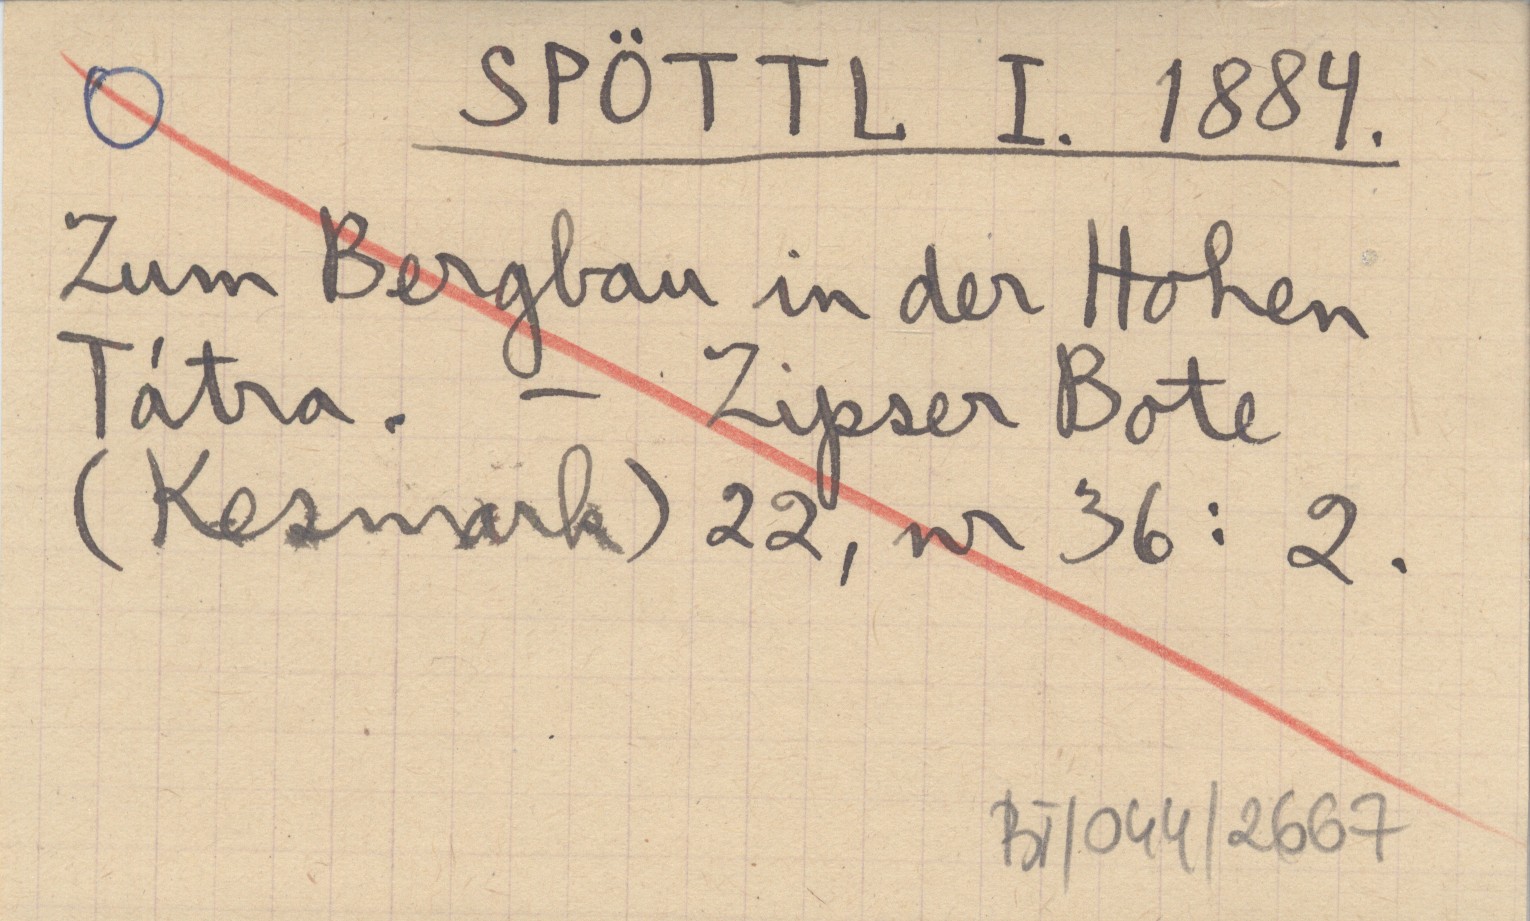 SPÖTTL I. 1884.
Zum Bergbau in der Hohen
Tátra. — Zipser Bote
(Kesmark) 22, nr 36: 2.
BT/044/2667